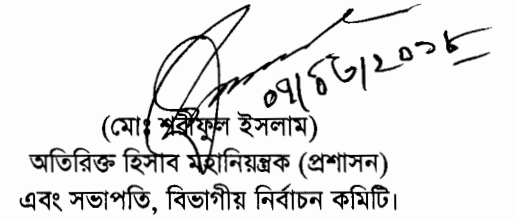 (মোঃ শরীফুল ইসলাম)
অতিরিক্ত হিসাব মহানিয়ন্ত্রক (প্রশাসন)
এবং সভাপতি, বিভাগীয় নির্বাচন কমিটি।